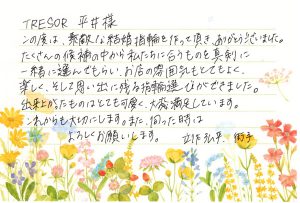 TRESOR 平井様
この度は、素敵な結婚指輪を作って頂き、ありがとうございました。
たくさんの候補の中から私たちに合うものを真剣に
一緒に選んでもらい、お店の雰囲気もとてもよく、
楽しく、そして思い出に残る指輪選びができました。
出来上がったものはとても可愛く、大変満足しています。
これからも大切にします。また、伺った時は
よろしくお願いします。